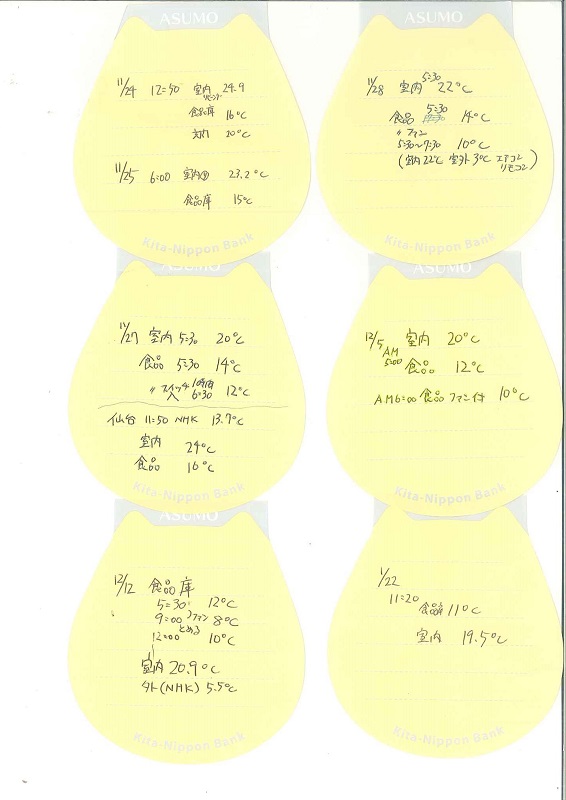 ASUMO
11/24 12=40 室内 24.9
リビング
食品庫 16℃
20℃
11/25 6:00 室内 23.2℃
食品庫 15℃
Kita-Nippon Bank
11/28 室内 5=30 22℃
食品 5=30 14℃
〃 ファン
5=30~7=30 10℃
(室内22℃ 室外3℃ エアコン
リモコン)
Kita-Nippon Bank
ASUMO
11/27 室内 5=30 20℃
食品 5=30 14℃
〃 スイッチ 1時間
入 6=30 12℃
仙台 11=50 NHK 13.7℃
室内 24℃
食品 16℃
Kita-Nippon Bank
ASUMO
12/5 室内 20℃
AM
5=00 食品 12℃
AM6=00 食品 ファン付 10℃
Kita-Nippon Bank
ASUMO
12/12 食品庫
5=30 12℃
9=00 ファン 8℃
とめる
12=00 10℃
室内 20.9℃
外(NHK) 5.5℃
Kita-Nippon Bank
1/22
11=20
食品庫 11℃
室内 19.5℃
Kita-Nippon Bank